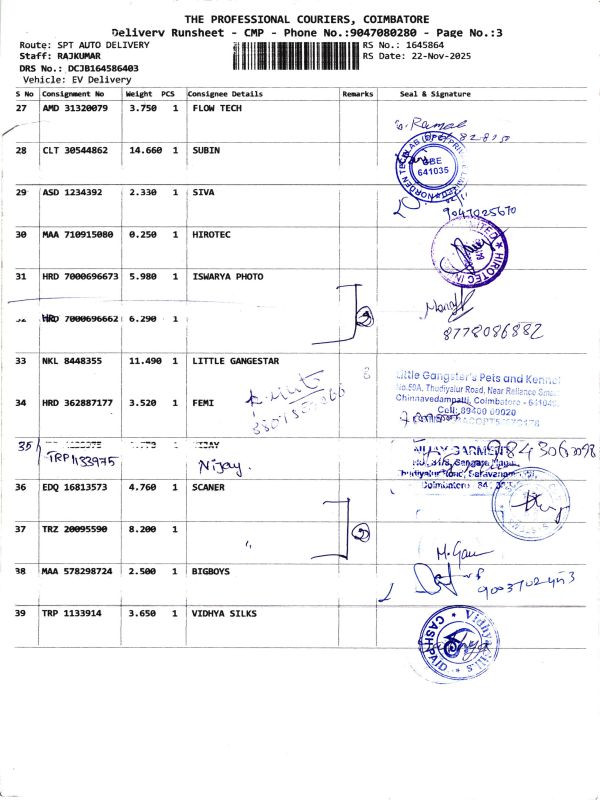 THE PROFESSIONAL COURIERS, COIMBATORE
Delivery Runsheet - CMP - Phone No.:9047080280 - Page No.:3
Route: SPT AUTO DELIVERY
RS No.: 1645864
Staff: RAJKUMAR
RS Date: 22-Nov-2025
DRS No.: DCJB164586403
Vehicle: EV Delivery
S No Consignment No Weight PCS Consignee Details Remarks Seal & Signature
27 AMD 31320079 3.750 1 FLOW TECH
28 CLT 30544862 14.660 1 SUBIN
641035
29 ASD 1234392 2.330 1 SIVA
9047025670
30 MAA 710915080 0.250 1 HIROTEC
HIROTEC
31 HRD 7000696673 5.980 1 ISWARYA PHOTO
32 HRD 7000696662 6.290 1
2
8778086882
33 NKL 8448355 11.490 1 LITTLE GANGESTAR
Little Gangster's Pets and Kennel
No.50A, Thudiyalur Road, Near Reliance
Chinnavedampatti, Coimbatore - 641049
Cell: 89400 09020
34 HRD 362887177 3.520 1 FEMI
35 1 VIJAY
TRP 1133975 Nijay.
36 EDQ 16813573 4.760 1 SCANER
37 TRZ 20095590 8.200 1
2
38 MAA 578298724 2.500 1 BIGBOYS
39 TRP 1133914 3.650 1 VIDHYA SILKS